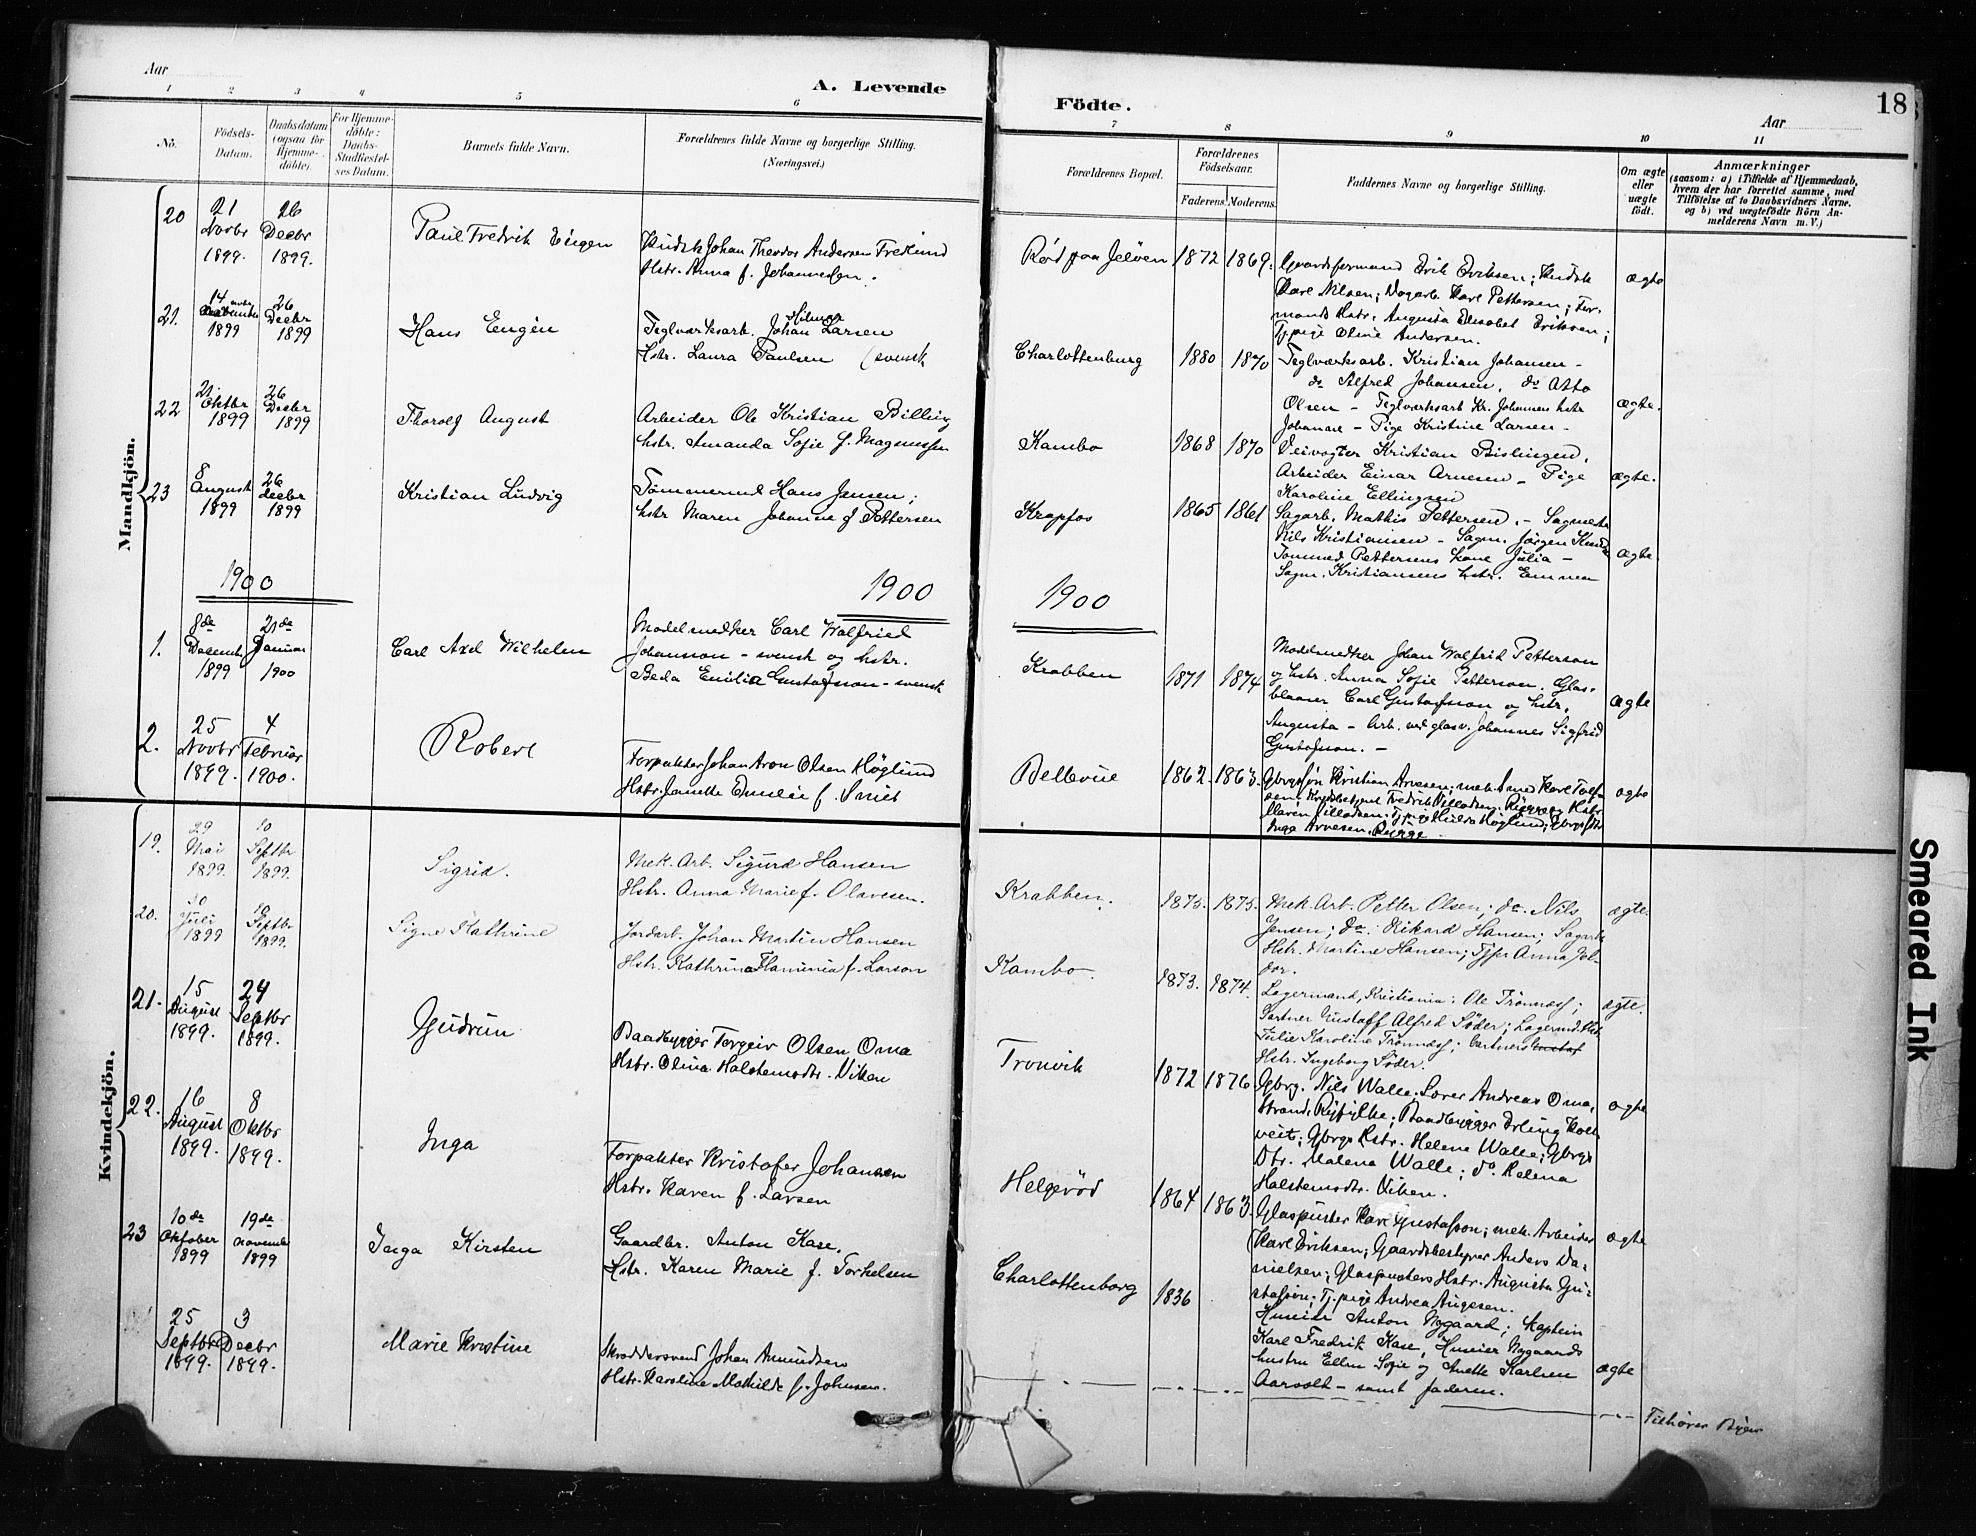 Aar
A. Levende
Födte.
Aar
18
1 2 3 4 5 6 7 8 9 10 11
No.
Födsels-
Datum.
Daabsdatum
(ogsaa for
Hjemme-
döbte).
For Hjemme-
döbte:
Daabs-
Stadfæstel-
ses Datum.
Barnets fulde Navn.
Forældrenes fulde Navne og borgerlige Stilling.
(Næringsvei.)
Forældrenes Bopæl.
Forældrenes
Födselsaar.
Faderens. Moderens.
Faddernes Navne og borgerlige Stilling.
Om ægte
eller
uægte
födt.
Anmærkninger
(saasom: a) i Tilfælde af Hjemmedaab,
hvem der har forrettet samme, med
Tilföielse af to Daabsvidners Navne.
og b) ved uægtefödte Börn An-
melderens Navn m.V.)
Mandkjön.
20
21
Novbr
1899.
26
Decbr
1899.
Paul Fredrik Eugen
Johan Theodor Andersen Fredlund
Hstr. Anna f. Johannesen.
Rød paa Jeløen
1872 1869.
Gaardsformand Erik Eriksen;
Karl Nilsen; Karl Pettersen; For-
mands Hstr. Augusta Elisabet Eriksen;
Tj.pige Oline Andersen.
ægte
21.
14
1899
26
Decbr
1899
Hans Eugen
Hilmar
Teglværksarb. Johan Larsen
Hstr. Laura Paulsen (svensk
Charlottenburg
1880 1870
Teglværksarb. Kristian Johansen -
do Alfred Johansen, do Otto
Olsen - Teglværksarb Kr. Johansens hstr
Johanne - Pige Kristine Larsen -
ægte.
22
21
Oktbr
1899
26
Decbr
1899
Thorolf August
Arbeider Ole Kristian Billing
hstr. Amanda Sofie f. Magnussen
Kambo
1868 1870
Veivogter Kristian Bislingen,
Arbeider Einar Arnesen - Pige
Karoline Ellingsen
ægte.
23
8
August
1899
26
Decbr
1899
Kristian Ludvig
Tømmermd Hans Jensen;
hstr Maren Johanne f Pettersen
Krapfos
1865 1861
Sagarb. Mathis Pettersen. - Sagmester
Nils Kristiansen - Sagm. Jørgen
Tømmermd Pettersens kone Julia -
Sagm. Kristiansens hstr. Emma
ægte.
1900
1900
1900
1.
8de
Decembr
1899
21de
Januar
1900
Carl Axel Wilhelm
Modelsnedker Carl Walfried
Johansson - svensk og hstr.
Beda Emilia Gustafsson - svensk
Krabben
1871 1874
Modelsnedker Johan Walfrid Petterson
og hstr. Anna Sofie Petterson. Glas-
blaaser Carl Gustafsson og hstr.
Augusta - Arb. ved glasv. Johannes Sigfrid
Gustafsson. -
ægte
2.
25
Novbr
1899.
4
Februar
1900.
Robert
Forpakter Johan Aron Olsen Höglund
Hstr. Janette Emilie f. Smidt
Bellevue
1862. 1863.
Kristian Arnesen; mek. Karl
Fredrik Villadsen, Rygge og Hstr.
Maren Villadsen; Tj.pige Hulda Höglund;
Inga Arnesen, Rygge
ægte
Kvindekjön.
19.
29
Mai
1899.
10
Septbr
1899.
Sigrid.
Mek. Arb. Sigurd Hansen
Hstr. Anna Marie f. Olavesen.
Krabben.
1873. 1875.
Mek. Arb. Petter Olsen; do. Nils
Jensen; do. Rikard Hansen; Sagarb.
Hstr. Martine Hansen; Anna
ægte
20.
30
Juli
1899
10
Septbr
1899.
Signe Kathrine
Jordarb. Johan Martin Hansen
Hstr. Kathrina Flaminia f. Larson
Kambo.
1873. 1874.
Lagermand, Kristiania: Ole Trönnæss;
Gartner Gustaff Alfred Söder; Lagermd. Hstr.
Julie Karoline Trönnæss; Gartners Gustaf
Hstr. Ingeborg Söder.
ægte.
21.
15
August
1899.
24
Septbr
1899.
Gudrun
Baadbygger Torgeir Olsen Oma
Hstr. Olina Halstensdtr. Viken
Tronvik
1872 1876.
Gbrg. Nils Walle; Andreas Oma,
Strand, Ryfylke; Baadbygger Erling
Gbrgs Hstr. Helena Walle; Gbrgs
Dtr. Malena Walle; do. Helena
Halstensdtr. Viken.
ægte
22.
16
August
1899.
8
Oktbr
1899.
Inga
Forpakter Kristofer Johansen
Hstr. Karen f. Larsen
Helgerød
1864 1863.
Glaspuster Karl Gustafsson; mek. Arbeider
Karl Eriksen; Gaardsbestyrer Anders Da-
nielsen; Glaspusters Hstr. Augusta Gu-
stafsson; Tj.pige Andrea Augesen.
ægte
23
10de
Oktober
1899
19de
november
1899
Inga Kirsten
Gaardbr. Anton Kase.
Hstr. Karen Marie f. Torkelsen
Charlottenborg
1836
Huseier Anton Nygaard; kaptein
Karl Fredrik Kase, Huseier Nygaards
hustru Ellen Sofie og Anette Karlsen
Aarvolt - samt faderen.
ægte
25
Septbr
1899.
3
Decbr
1899.
Marie Kristine
Skræddersvend Johan Amundsen
Hstr. Karoline Mathilde f. Johnsen.
Tilhører Byen
Smeared Ink